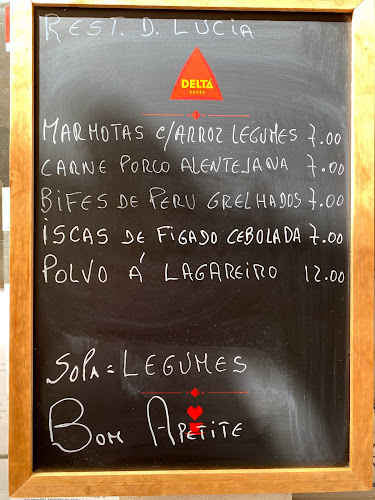 REST. D. LUCIA
DELTA
CAFÉS
MARMOTAS C/ARROZ LEGUMES 7.00
CARNE PORCO ALENTEJANA 7.00
BIFES DE PERU GRELHADOS 7.00
ISCAS DE FIGADO CEBOLADA 7.00
POLVO Á LAGAREIRO 12.00
SOPA = LEGUMES
BOM APETITE